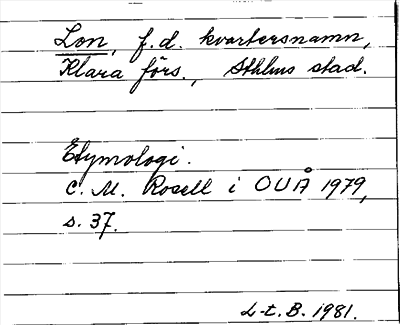 Lon, f.d. kvartersnamn,
Klara förs., Sthlms stad.
Etymologi.
C. M. Rosell i OUÅ 1979,
s. 37.
L-t. B. 1981.